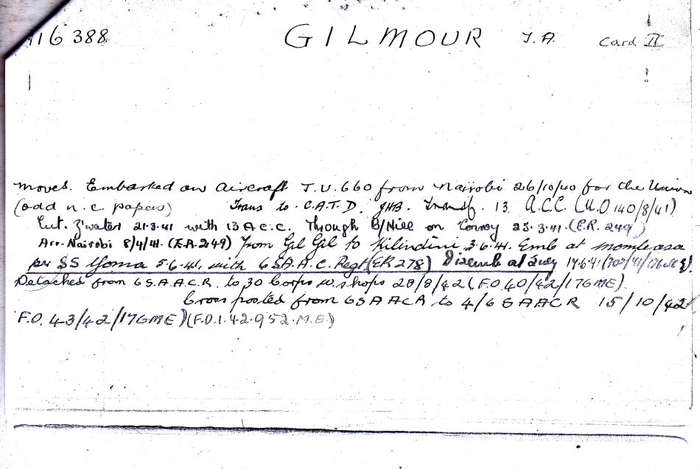 116388 GILMOUR J.A. Card II
Moves. Embarked on Aircraft T.U.660 from Nairobi 26/10/40 for the Union
(add n.c. papers) Trans to. C.A.T.D. JHB. Transf. 13 A.C.C. (U.O 140/8/41)
Ent. Z'water 21.3.41 with 13 A.C.C. Through B/Hill on Convoy 25.3.41. (E.R. 249)
Arr. Nairobi 8/4/41. (E.R. 249) From Gil Gil to Kilindini 3.6.41. Emb at Mombasa
per SS Yoma 5.6.41. with 6 S.A.A.C. Regt (E.R 278) Disemb at Suez 17.6.41
Detached from 6 S.A.A.C.R. to 30 Corps W.shops 28/8/42 (F.O.40/42/17GME).
Cross posted from 6SAACR to 4/6 SAACR 15/10/42
F.O. 43/42/17GME) (F.O.1.42.952.M.E.)